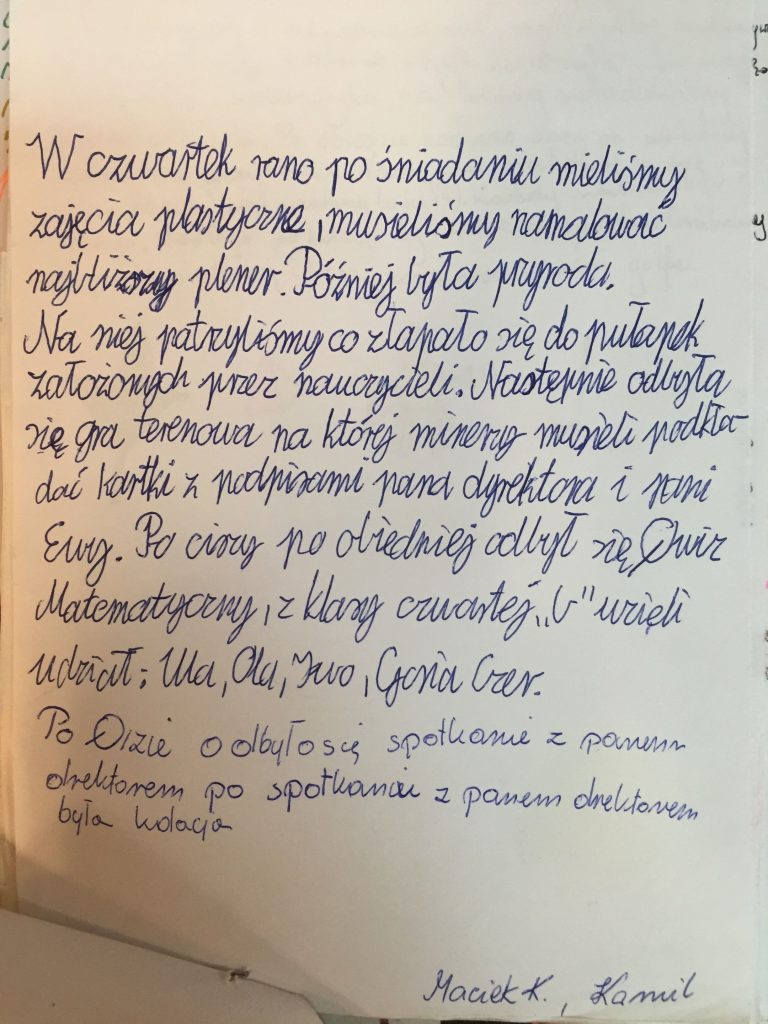 W czwartek rano po śniadaniu mieliśmy
zajęcia plastyczne, musieliśmy namalować
najbliższy plener. Później była przyroda.
Na niej patrzyliśmy co złapało się do pułapek
założonych przez nauczycieli. Następnie odbyła
się gra terenowa na której minerzy musieli podkła-
dać kartki z podpisami pana dyrektora i pani
Ewy. Po ciszy po obiedniej odbył się Quiz
Matematyczny, z klasy czwartej „b" wzięli
udział: Ula, Ola, Iwo, Gosia Czer.
Po o odbyło się spotkanie z panem
drektorem po spotkaniu z panem drektorem
była kolacja
Maciek K., Kamil